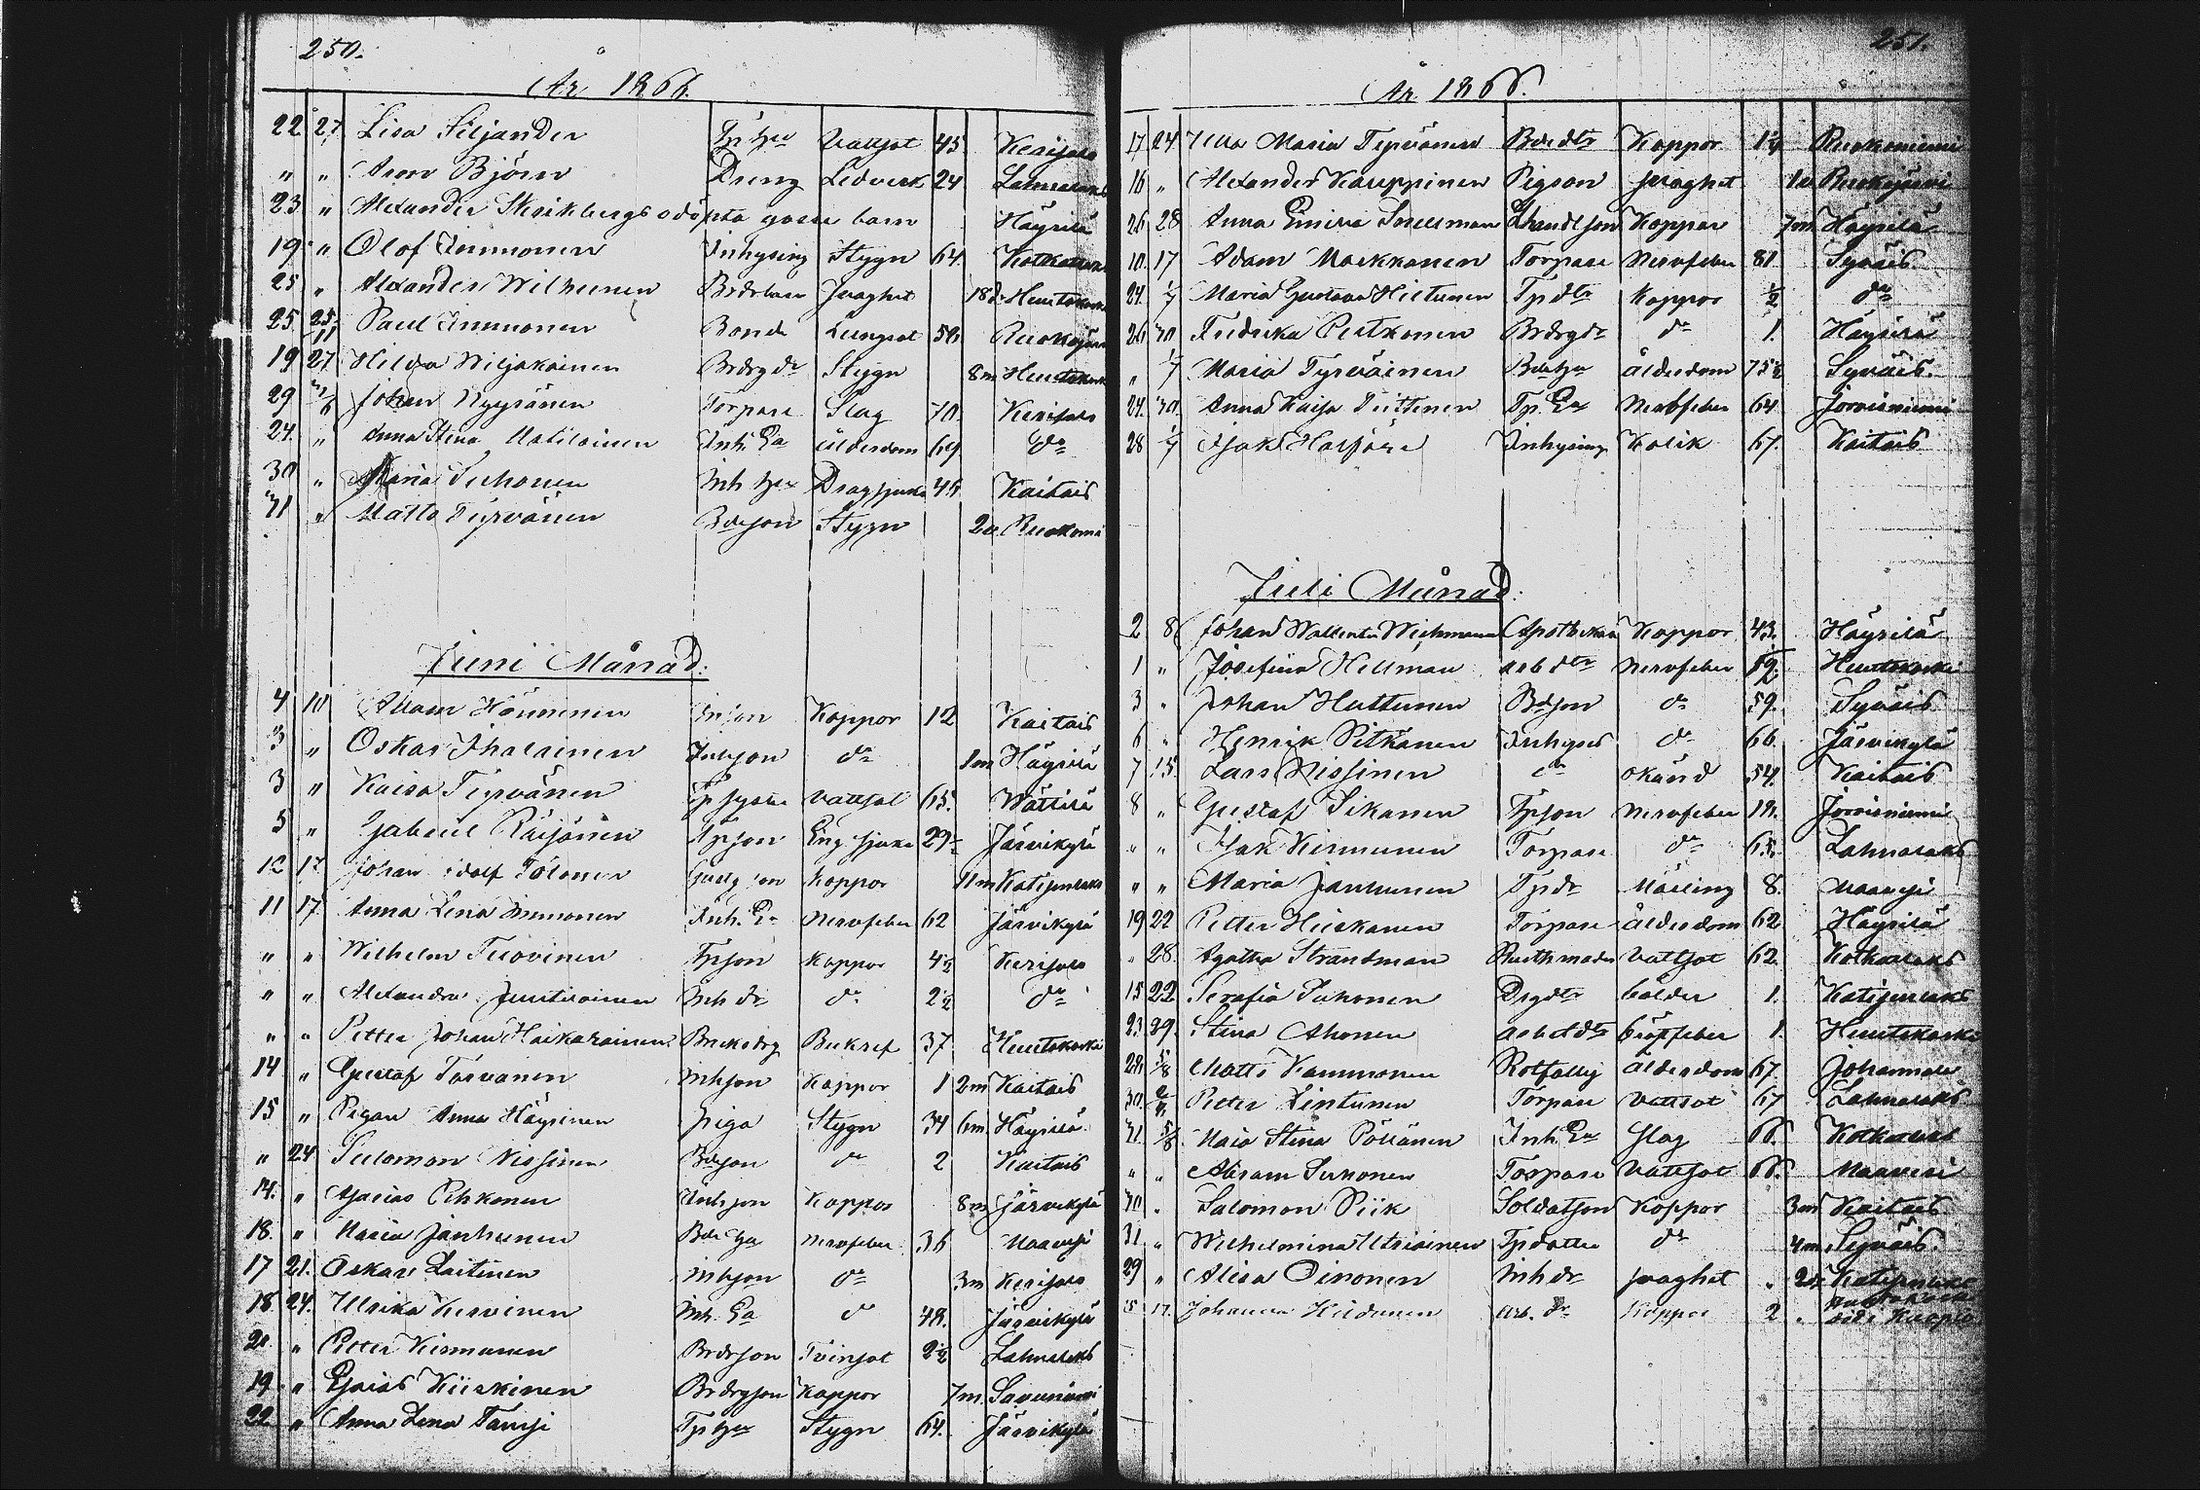 250.
År 1866.
22 27 Lisa Siljander Tp hu Vattsot 45 Kerisalo
" " Aron Björn Dreng Ledverk 24 Lahnalaks
23 " Alexander Skrikbergs odöpta gosse barn Häyrilä
19 " Olof Immonen Inhysing Stygn 64 Kotkatlaks
25 " Alexander Wilhunen Svaghet 18d. Huutokoski
25. Paul Immonen Bonde Lungsot 50 Ruokojärvi
19 27 Hilda Wiljakainen Brdrgdr Stygn 8m Huutokoski
29 Johan Nyyrönen Torpare Slag 70. Kerisalo
24. " Anna Stina Matilainen Inh. Ea ålderdom 69 do
30 " Maria Suhonen Inh hu Dragsjuka 45 Kaitais
31 " Matts Tyrvänen Bdeson Stygn 2v Ruokoni
Juni Månad.
4 10 Adam Hämminen Inson Koppor 12 Kaitais
3 " Oskar Ihalainen Inhson do 1m Häyrilä
3 " Kaisa Tyrvänen Vattsot 65. Wättilä
5 " Gabriel Räisänen Tpson Eng. sjuka 29½ Järvikylä
12 17 Johan Adolf Tolonen son Koppor 11m Katisenlaks
11 17 Anna Lena Immonen Inh. Ea Nervfeber 62 Järvikylä
" " Wilhelm Tuovinen Tpson Koppor 4½ Kerisalo
" " Alexandra Juutilainen Inh dr do 2½ do
" " Petter Johan Haikarainen Bruksdrg Bukref 37. Huutokoski
14 " Gustaf Tarvanen Inhson Koppor 1 2m Kaitais
15 " Pigan Anna Häyrinen piga Stygn 34 6m. Häyrilä
" 24 Salomon Nissinen Bdeson do 2 Kaitais
14. " Asarias Pihkonen Inhson Koppor 8m Järvikylä
18. " Maria Janhunen Bde hu Nervfeber 36 Maavesi
17 21. Oskar Laitinen Inhson do 3m Kerisalo
18 24. Ulrika Kervinen Inh. Ea do 48. Järvikylä
20. " Petter Kinnunen Brdrson Tvinsot 2½ Lahnalaks
19 " Esaias Kiiskinen Brdrgson Koppor 7m. Savuniemi
22 " Anna Lena Tamsi Tp hu Stygn 64. Järvikylä
251.
År 1866.
17 24 Ulla Maria Tyrvänen Bdedtr Koppor 1¼ Ruokoniemi
16 " Alexander Kauppinen Pigson svaghet 1v Ruokojärvi
26 28 Anna Emilia Snellman Koppor 7m Häyrilä
10. 17 Adam Markkanen Torpare Nervfeber 81. Syväis
24. 1/7 Maria Gustava Hiltunen Tpdtr Koppor ½ do
26 30 Fredrika Pertkonen Brdrgdr do 1. Häyrilä
" 1/7 Maria Tyrväinen Bdehu ålderdom 75½ Syväis.
24. 30. Anna Kaisa Tiittinen Tp. Ea Nervfeber 64. Joroisniemi
28 1/7 Isak Inhysing Kolik 67. Kaitais
Juli Månad.
2 8 Johan Wallentin Wichmann Apothekare Koppor 43. Häyrilä
1 " Josefina Hellman arb dtr Nervfeber Huutokoski
3 " Johan Huttunen Bdson do 59. Syväis
6 " Henrik Pitkänen Inhyses do 66. Järvikylä
7 15 Lars Nissinen do okänd 54. Kaitais
8 " Gustaf Sikanen Tpson Nervfeber 18. Joroisniemi
" " Isak Kinnunen Torpare do 65. Lahnalaks
" " Maria Janhunen Tpdr Mässling 8. Maavesi
19 22 Petter Hiiskanen Torpare ålderdom 62 Häyrilä
" 28. Agatha Strandman vattsot 62. Kotkatlaks
15 22 Serafia Suhonen Drgdtr bölder 1. Katisenlaks
23. 29. Stina Ahonen 1. Huutokoski
28. 5/8 Matts Kammonen Rotfattig ålderdom 67. Johannala
30 Petter Lintunen Torpare Vattsot 67 Lahnalaks
31. 5/8 Maia Stina Pöllänen Inh. Ea Slag 66. Kotkatlaks
" " Abram Suhonen Torpare Vattsot 66. Maavesi
30 " Salomon Piik Soldatson Koppor 3m Kaitais
31. " Wilhelmina Utriainen Tpdotter do 4m Syväis.
29 " Alisa Oinonen Inh dr svaghet " Katisenlaks
17. Johanna Arb. dr Koppor 2 " Kuopio